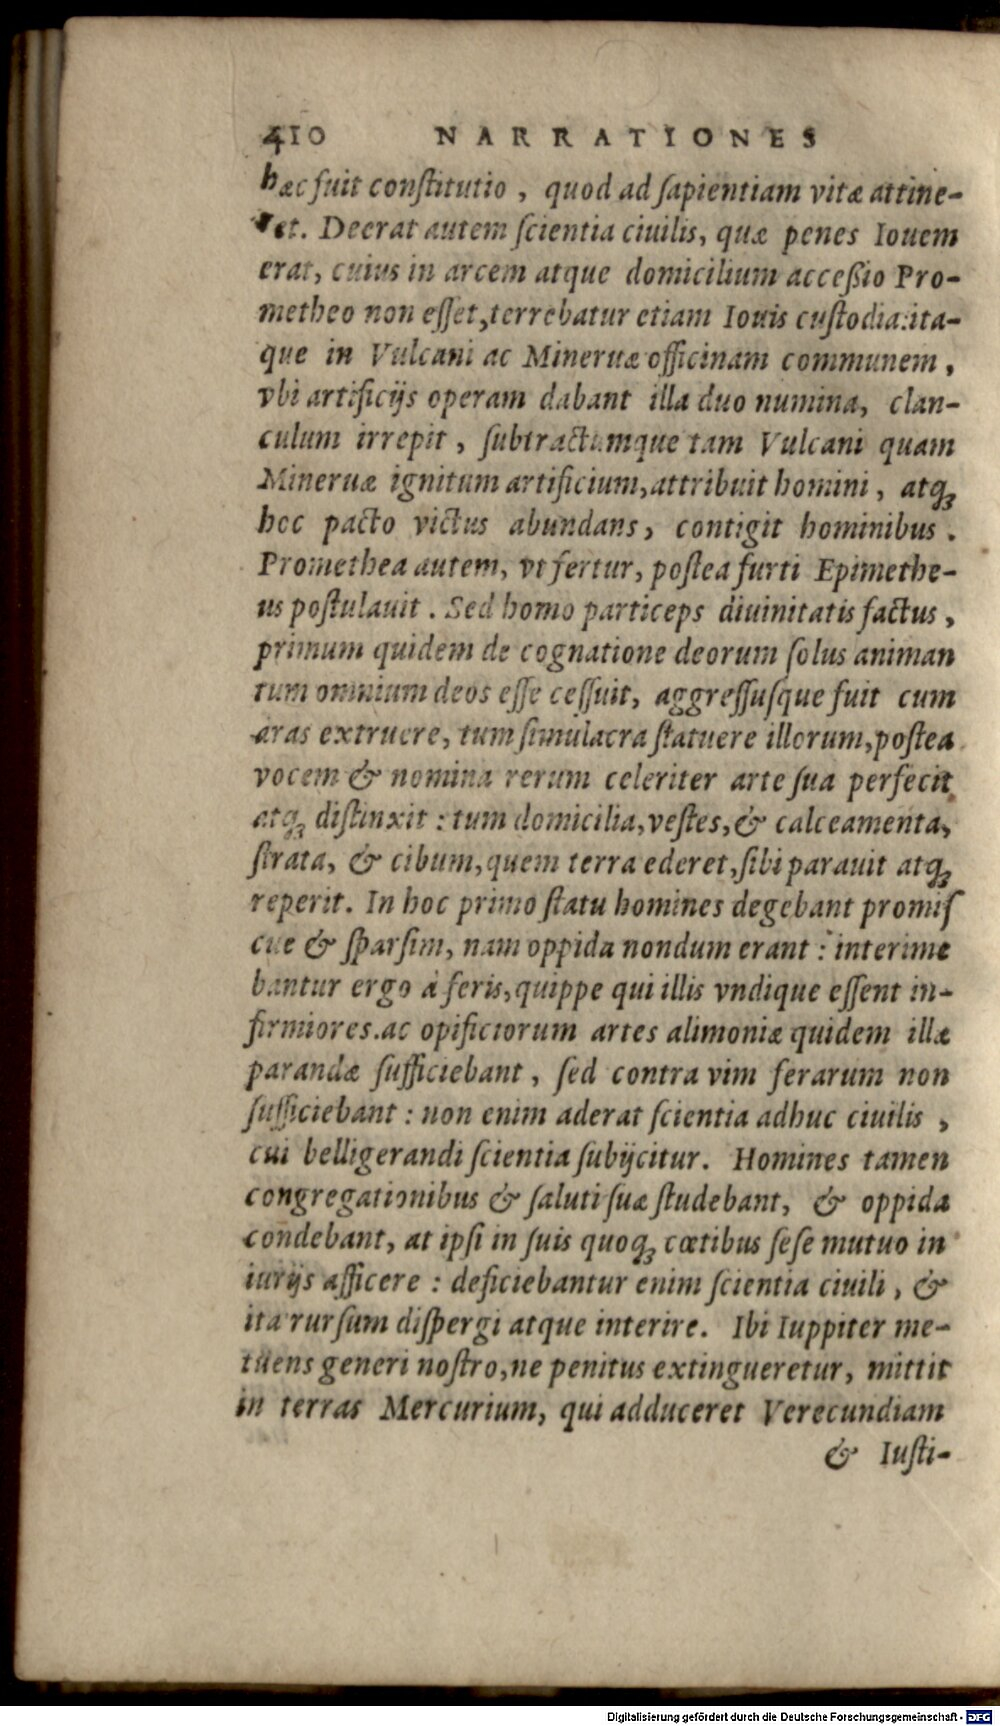 410 NARRATIONES
hæc fuit conſtitutio , quod ad ſapientiam vitæ attine-
ret. Deerat autem ſcientia ciuilis, quæ penes Iouem
erat, cuius in arcem atque domicilium acceßio Pro-
metheo non eſſet,terrebatur etiam Iouis cuſtodia:ita-
que in Vulcani ac Mineruæ officinam communem ,
vbi artificijs operam dabant illa duo numina, clan-
culum irrepit , ſubtractumque tam Vulcani quam
Mineruæ ignitum artificium,attribuit homini , atqꝫ
hoc pacto victus abundans, contigit hominibus .
Promethea autem, vt fertur, poſtea furti Epimethe-
us poſtulauit . Sed homo particeps diuinitatis factus ,
primum quidem de cognatione deorum ſolus animan
tum omnium deos eſſe ceſſuit, aggreſſuſque fuit cum
aras extruere, tum ſimulacra ſtatuere illorum,poſtea
vocem & nomina rerum celeriter arte ſua perfecit
atqꝫ diſtinxit : tum domicilia,veſtes,& calceamenta,
ſtrata, & cibum,quem terra ederet,ſibi parauit atqꝫ
reperit. In hoc primo ſtatu homines degebant promiſ
cue & ſparſim, nam oppida nondum erant : interime
bantur ergo à feris,quippe qui illis vndique eſſent in-
firmiores.ac opificiorum artes alimoniæ quidem illæ
parandæ ſufficiebant , ſed contra vim ferarum non
ſufficiebant : non enim aderat ſcientia adhuc ciuilis ,
cui belligerandi ſcientia ſubijcitur. Homines tamen
congregationibus & ſaluti ſuæ ſtudebant, & oppida
condebant, at ipſi in ſuis quoqꝫ cœtibus ſeſe mutuo in
iurijs afficere : deficiebantur enim ſcientia ciuili , &
ita rurſum diſpergi atque interire. Ibi Iuppiter me-
tuens generi noſtro,ne penitus extingueretur, mittit
in terras Mercurium, qui adduceret Verecundiam
& Iuſti-
Digitalisierung gefördert durch die Deutsche Forschungsgemeinschaft - DFG